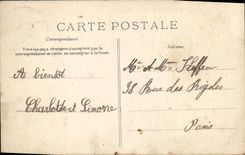 CARTE POSTALE
Correspondance
Adresse
Tous les pays étrangers n'acceptent pas la
correspondance au recto. Se renseigner
à la Poste
A bientôt
Charlotte et Simone
Mr & Mme Steffen
38 Rue des Rigoles
Paris